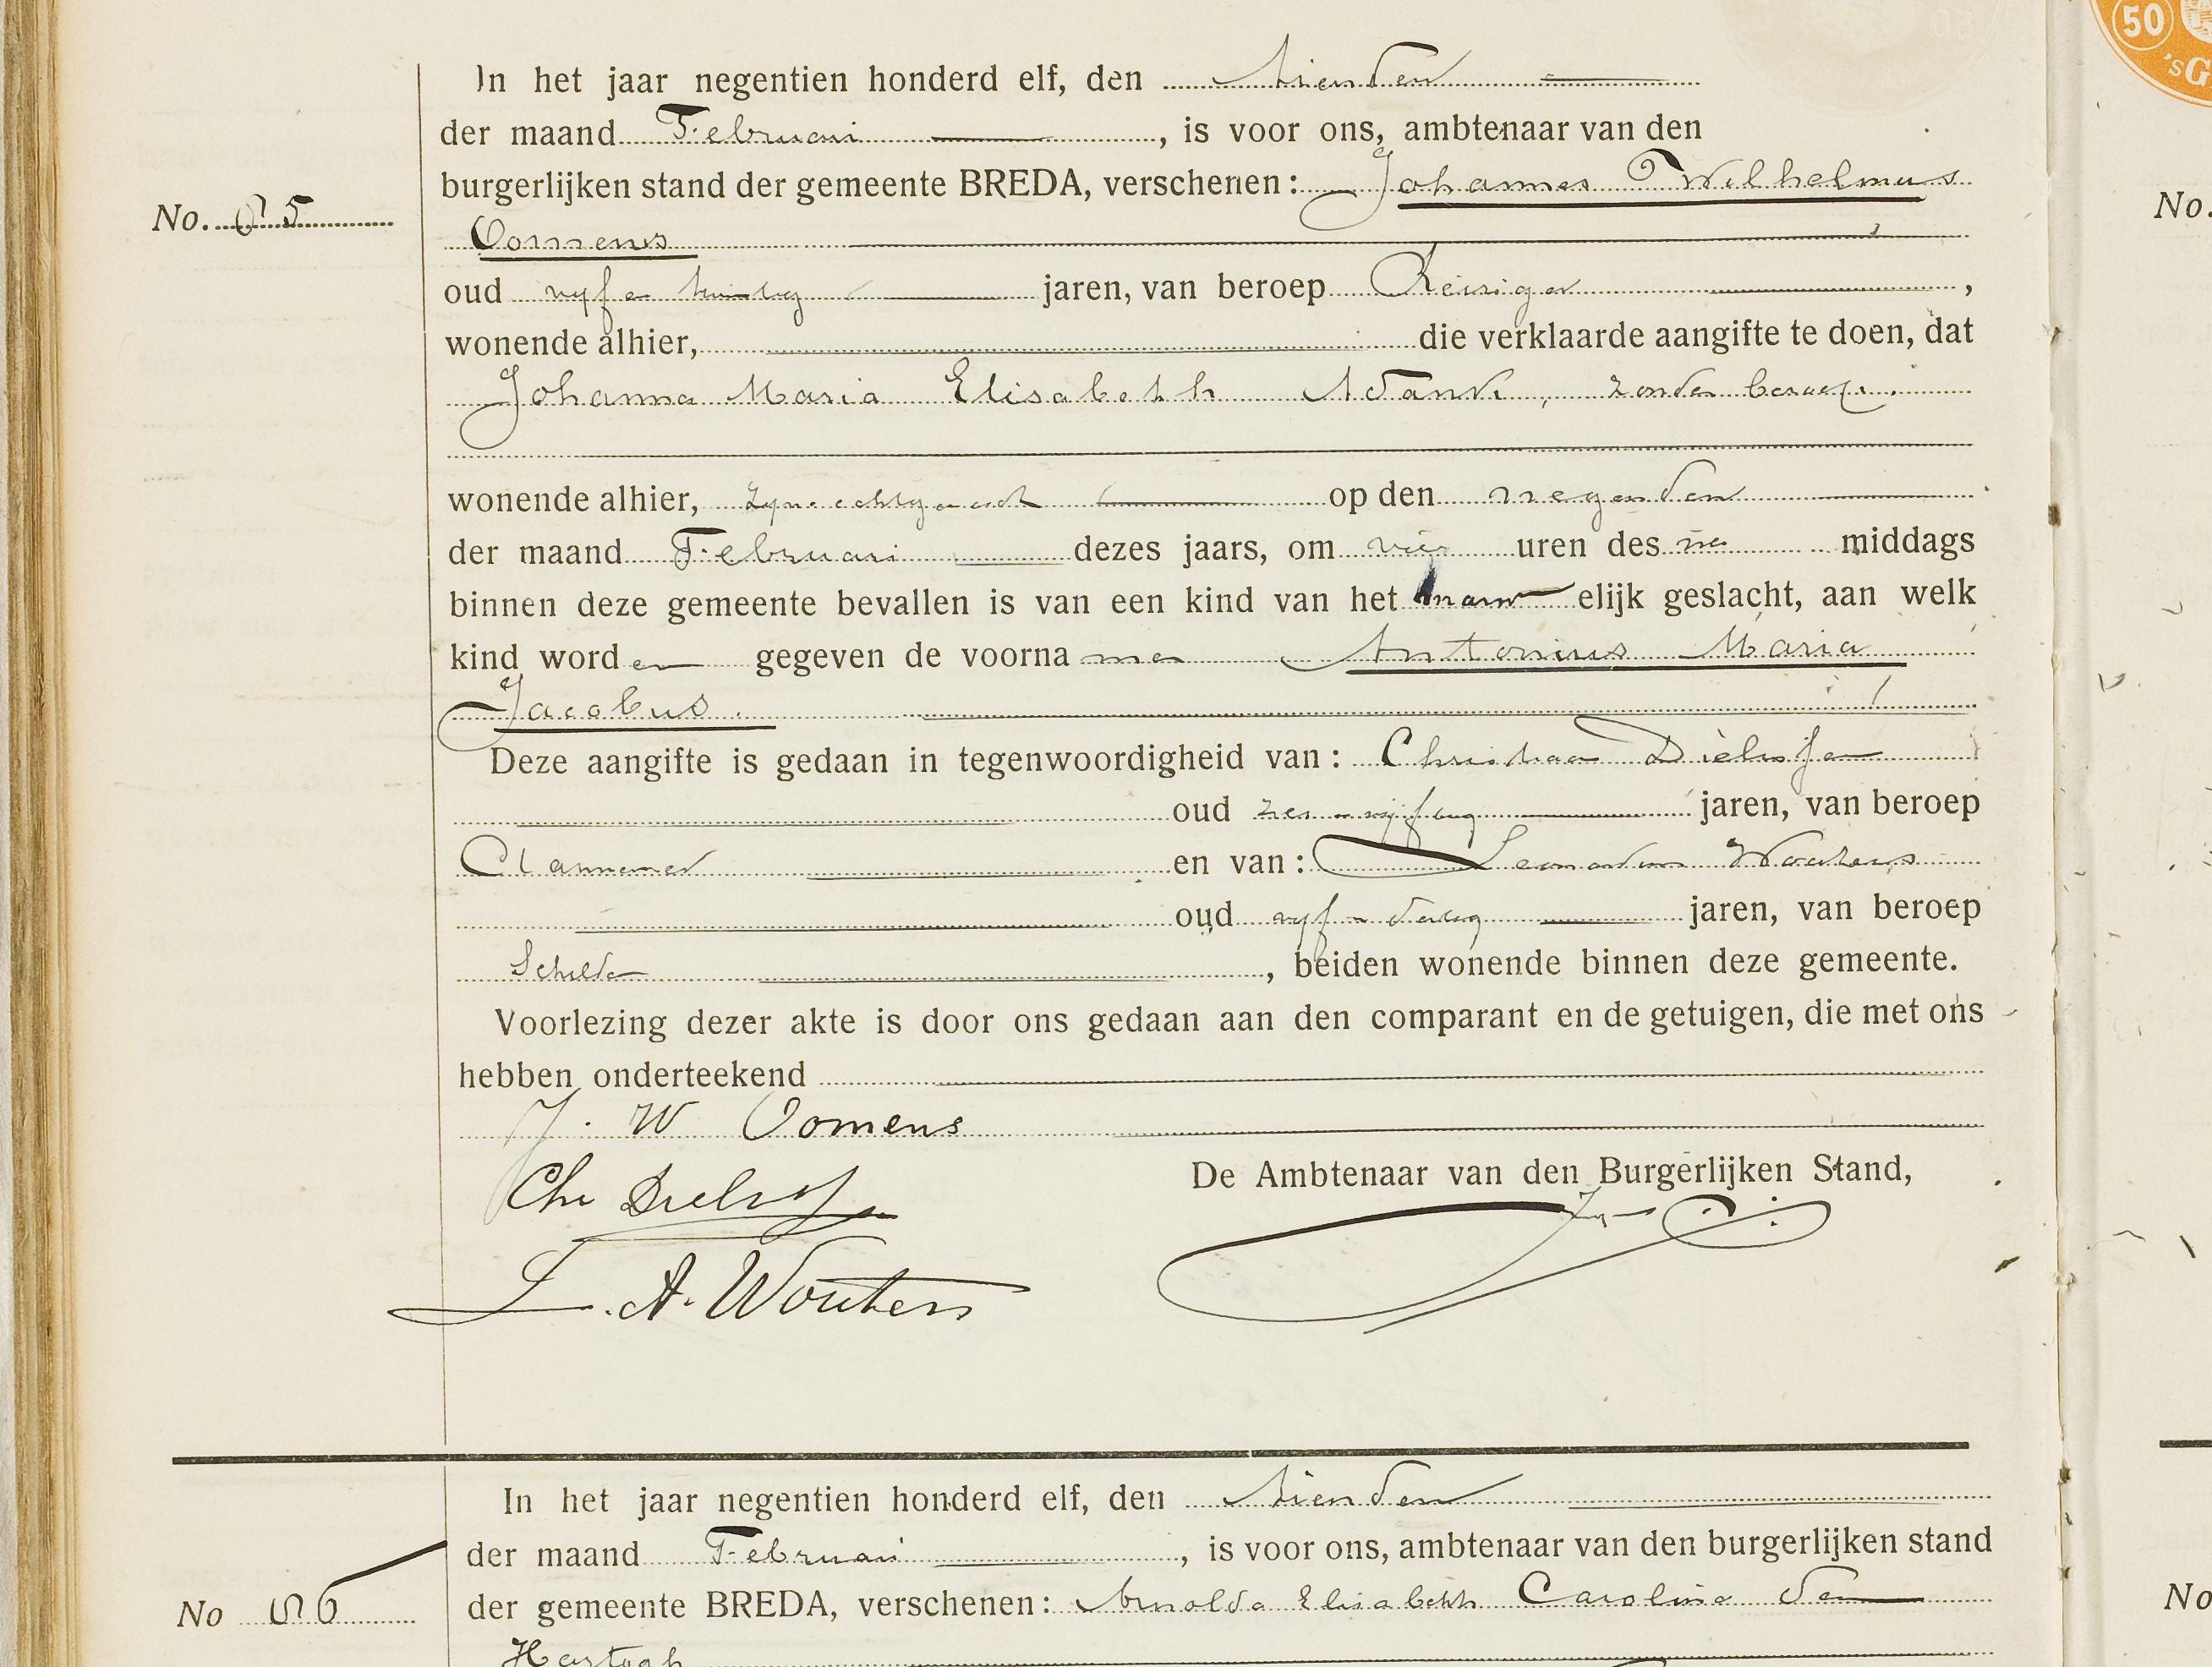 In het jaar negentien honderd elf, den tienden
der maand Februari, is voor ons, ambtenaar van den
burgerlijken stand der gemeente BREDA, verschenen: Johannes Wilhelmus
No. 95
Oomens
oud vijf en twintig jaren, van beroep Reiziger,
wonende alhier, die verklaarde aangifte te doen, dat
Johanna Maria Elisabeth Adank, zonder beroep.
wonende alhier, zijne echtgenoot op den negenden
der maand Februari dezes jaars, om vier uren des na middags
binnen deze gemeente bevallen is van een kind van het mann elijk geslacht, aan welk
kind worden gegeven de voornamen Antonius Maria
Jacobus.
Deze aangifte is gedaan in tegenwoordigheid van: Christiaan
oud zes en vijftig jaren, van beroep
en van: Leonardus Wouters
oud vijf en dertig jaren, van beroep
Schilder, beiden wonende binnen deze gemeente.
Voorlezing dezer akte is door ons gedaan aan den comparant en de getuigen, die met ons
hebben onderteekend
J. W Oomens
De Ambtenaar van den Burgerlijken Stand,
Chr
L. A. Wouters
In het jaar negentien honderd elf, den tienden
der maand Februari, is voor ons, ambtenaar van den burgerlijken stand
No 96
der gemeente BREDA, verschenen: Arnolda Elisabeth Carolina den
Hartogh
50
'sG
No.
No